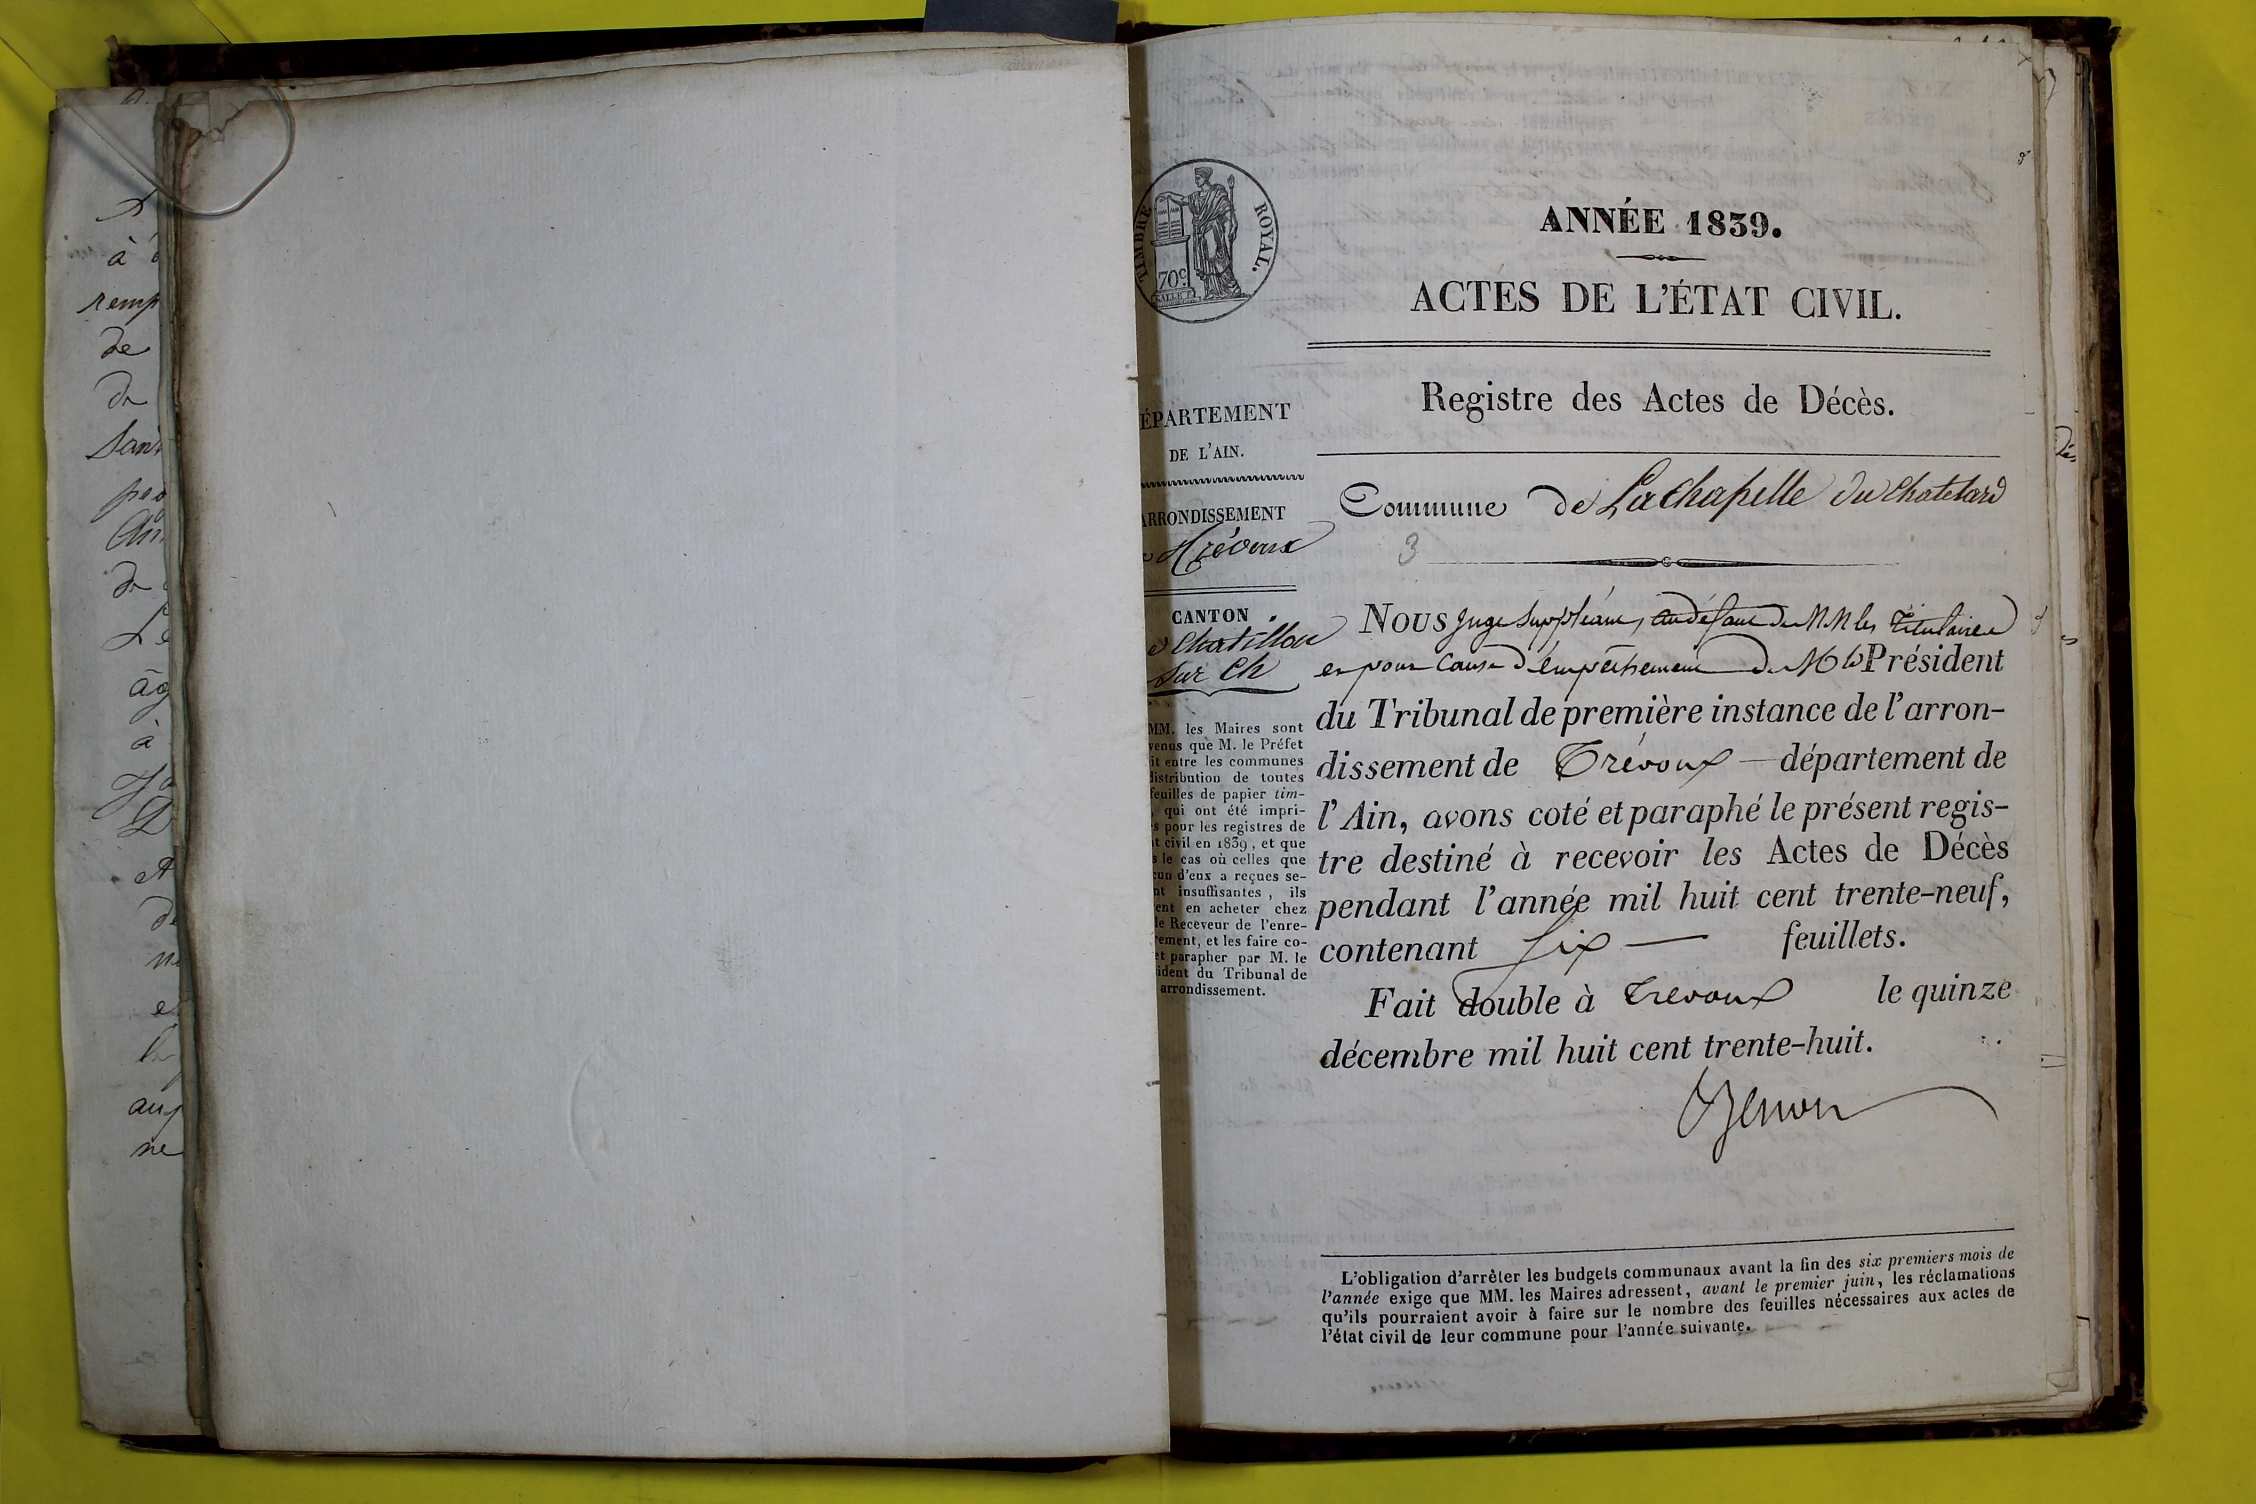 à
remp
de
de
TIMBRE ROYAL.
70c.
ANNÉE 1839.
ACTES DE L'ÉTAT CIVIL.
Registre des Actes de Décès.
ÉPARTEMENT
DE L'AIN.
Commune de Lachapelle du Chatelard
ARRONDISSEMENT
Trévoux
3
CANTON
Chatillon
sur Ch
MM. les Maires sont
venus que M. le Préfet
it entre les communes
distribution de toutes
feuilles de papier tim-
, qui ont été impri-
s pour les registres de
t civil en 1839, et que
s le cas où celles que
cun d'eux a reçues se-
nt insuffisantes, ils
ent en acheter chez
le Receveur de l'enre-
rement, et les faire co-
et parapher par M. le
sident du Tribunal de
arrondissement.
NOUS Juge Suppléant, au défaut de MM les Titulaires
et pour cause d'empêchement de M le Président
du Tribunal de première instance de l'arron-
dissement de Trévoux — département de
l'Ain, avons coté et paraphé le présent regis-
tre destiné à recevoir les Actes de Décès
pendant l'année mil huit cent trente-neuf,
contenant Six — feuillets.
Fait double à Trevoux le quinze
décembre mil huit cent trente-huit.
L'obligation d'arrêter les budgets communaux avant la fin des six premiers mois de
l'année exige que MM. les Maires adressent, avant le premier juin, les réclamations
qu'ils pourraient avoir à faire sur le nombre des feuilles nécessaires aux actes de
l'état civil de leur commune pour l'année suivante.